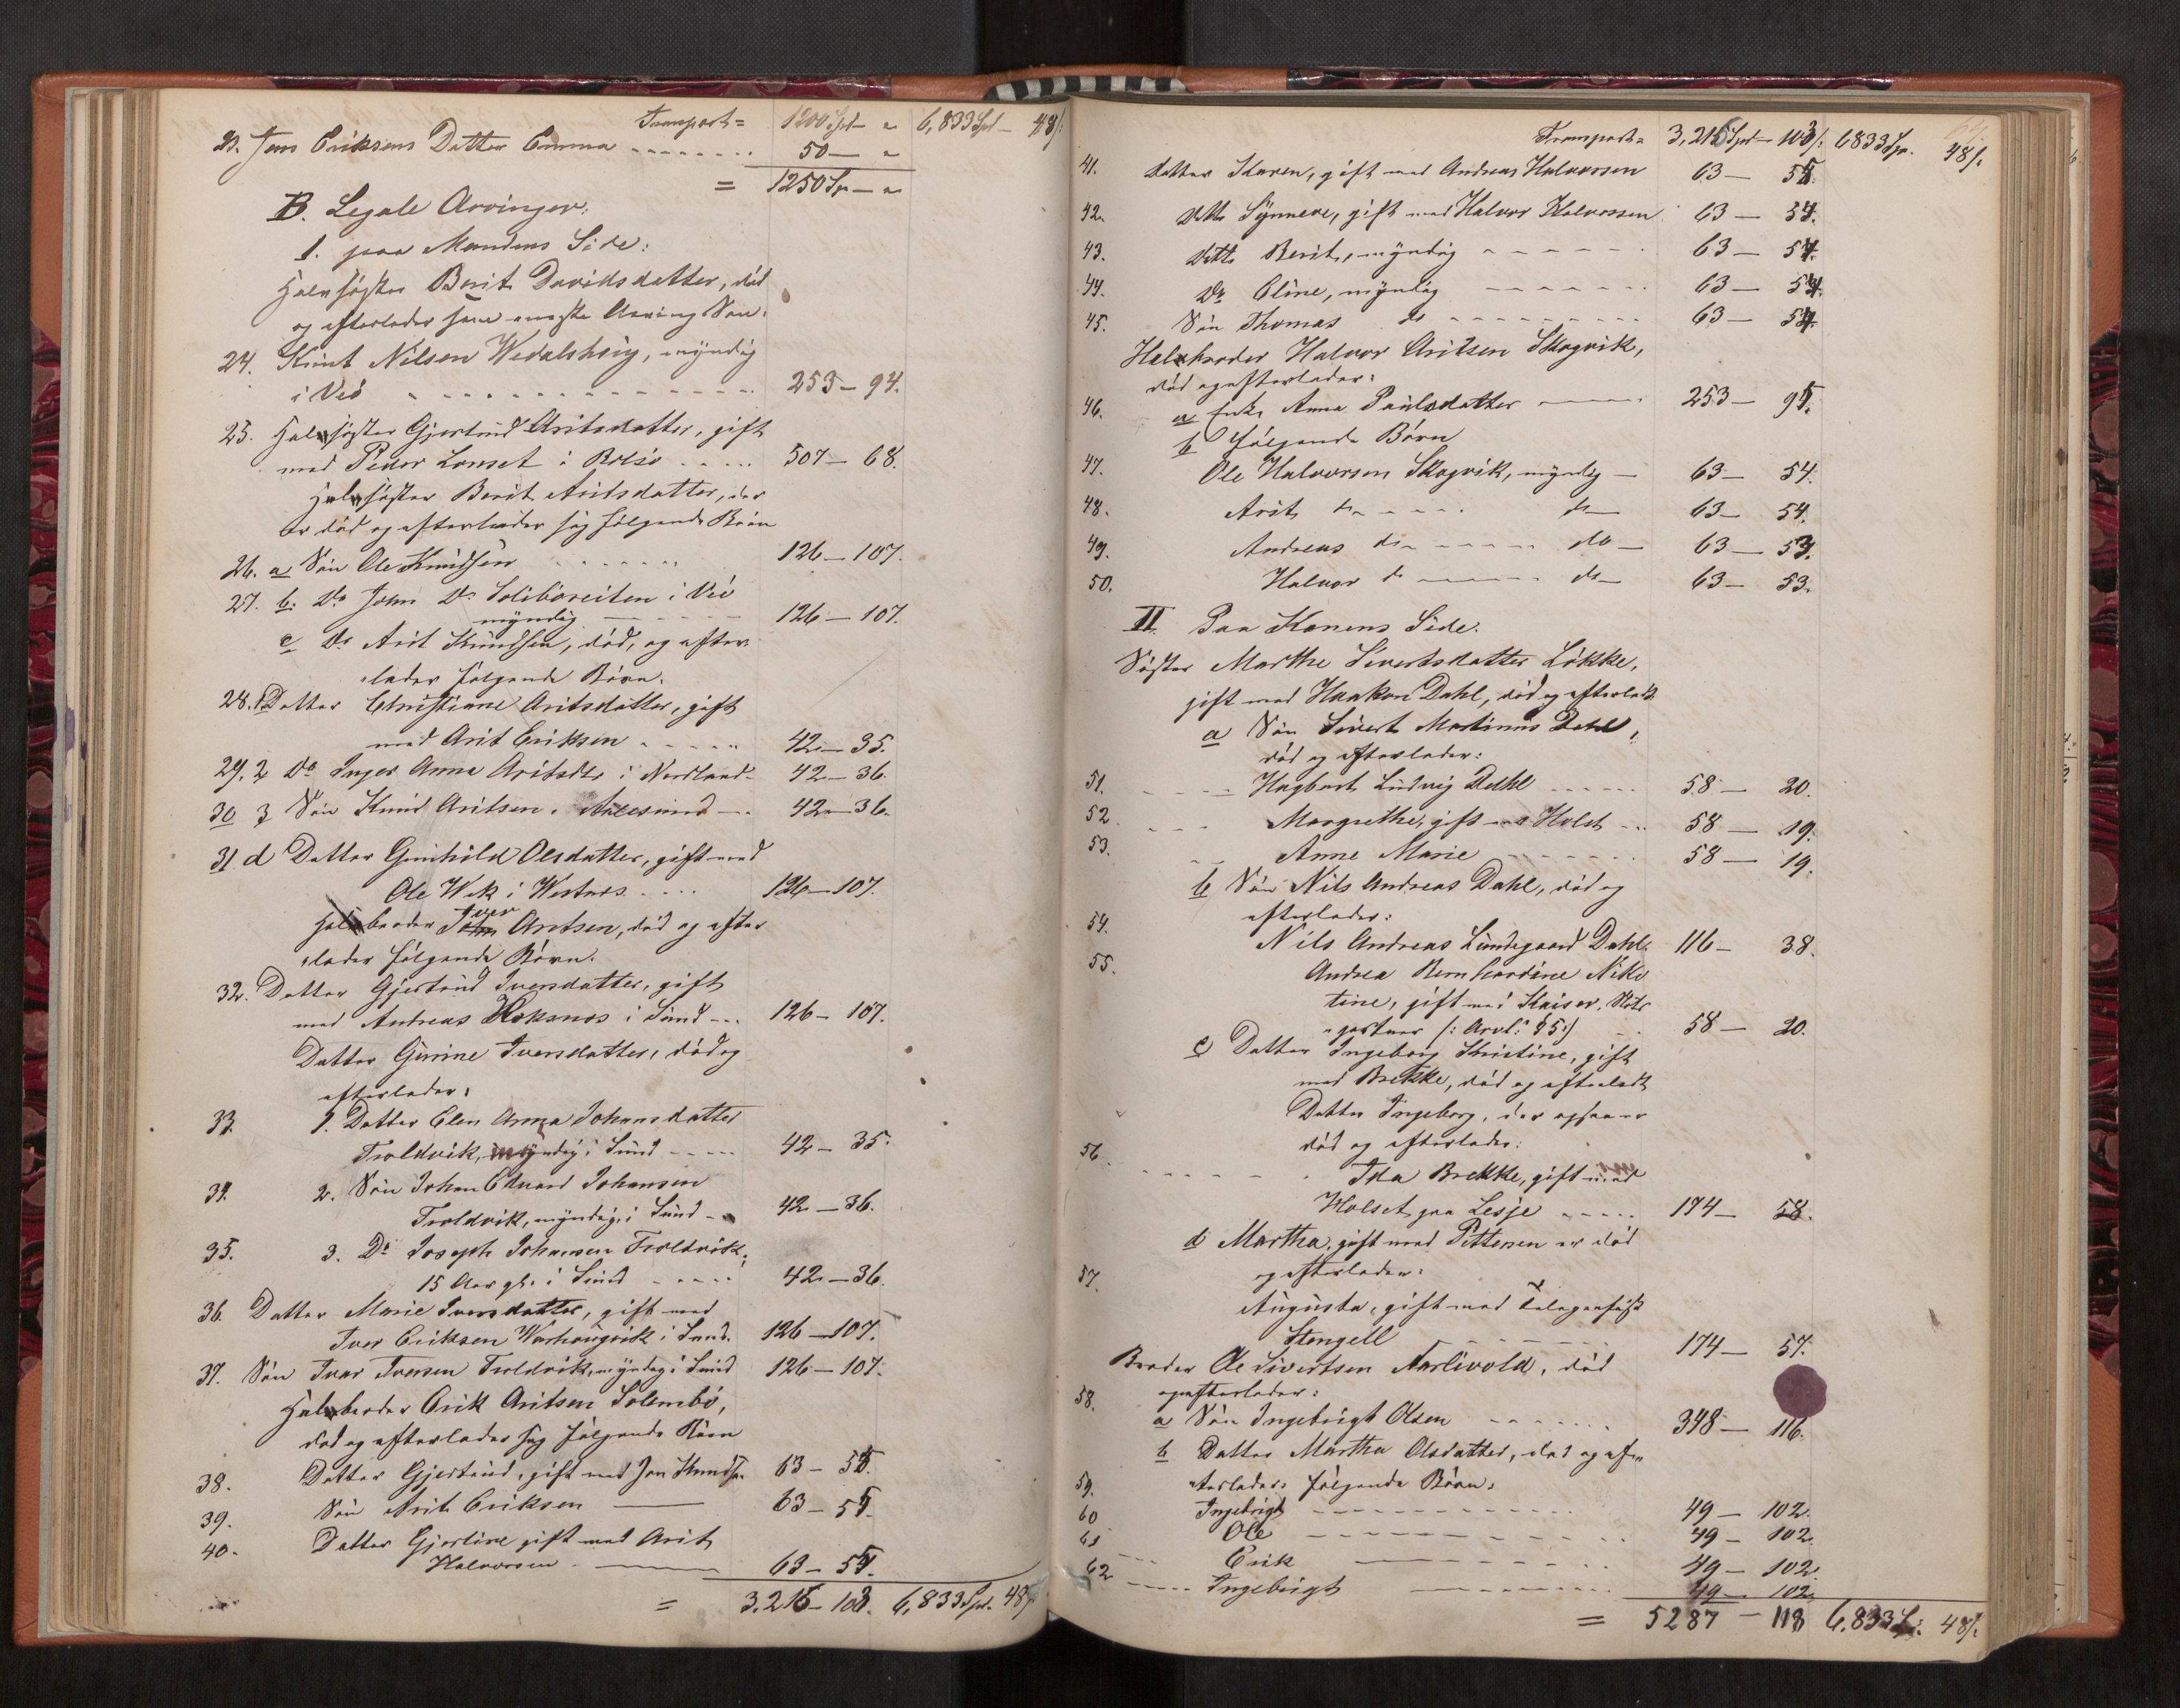 Transport = 1200 Spd - " 6,833 Spd - 48 ß
23. Jens Eriksens Datter Emma 50 — "
= 1250 Sp — "
B. Legale Arvinger:
1. paa Mandens Side:
Halvsøster Berit Davidsdatter, død
og efterlader som eneste Arving Søn:
24. Knut Nilsen Wedalsheig, myndig
i Veø 253 — 94.
25. Halvsøster Gjertrud Aritsdatter, gift
med Peder Lonset i Bolsø 507 — 68.
Halvsøster Berit Aritsdatter, der
er død og efterlader sig følgende Børn
26. a Søn Ole Knudsen 126 — 107.
27. b. Do John Do Solibøreiten i Veø
myndig 126 — 107.
c Do Arit Knudsen, død, og efter-
lader følgende Børn.
28. 1 Datter Christiane Aritsdatter, gift
med Arit Eriksen 42 — 35.
29. 2 Do Inger Anna Aritsdtr i Nordland 42 — 36.
30 3 Søn Knud Aritsen i Aalesund 42 — 36.
31 d Datter Gunhild Olsdatter, gift med
Ole Wik i Westnes 126 — 107.
Halvbroder Iver Aritsen, død og efter
lader følgende Børn.
32. Datter Gjertrud Iversdatter, gift
med Andreas Hoksnes i Sund 126 — 107.
Datter Gurine Iversdatter, død og
efterlader:
33. 1. Datter Elen Anna Johansdatter
Troldvik, myndig i Sund 42 — 35.
34. 2. Søn Johan Edvard Johansen
Troldvik, myndig i Sund 42 — 36.
35. 3. Do Joseph Johansen Troldvik,
15 Aar gl. i Sund 42 — 36.
36. Datter Marie Iversdatter, gift med
Iver Eriksen Warhougvik i Sund. 126 — 107.
37. Søn Ivar Iversen Troldvik, myndig i Sund 126 — 107.
Halvbroder Erik Aritsen Solembø,
død og efterlader sig følgende Børn
38. Datter Gjertrud, gift med Jon Knuds. 63 — 55.
39. Søn Arit Eriksen 63 — 55.
40. Datter Gjertine gift med Arit
Halvorsen 63 — 55.
= 3.215 — 103. 6,833 Spd. 48 ß
Transport = 3,215 Spd — 103 ß. 6833 Sp. 48 ß.
41. Datter Karen, gift med Andreas Halvorsen 63 — 55.
42. Datter Synneve, gift med Halvor Halvorsen 63 — 54.
43. Datter Berit, myndig 63 — 54.
44. Do Oline, myndig 63 — 54.
45. Søn Thomas do 63 — 54.
Halvbroder Halvor Aritsen Skogvik,
død og efterlader:
46. a Enke Anna Paulsdatter 253 — 95.
b følgende Børn
47. Ole Halvorsen Skogvik, myndig — 63 — 54.
48. Arit do do 63 — 54.
49. Andreas do do — 63 — 53.
50. Halvor do do 63 — 53.
II. Paa Konens Side.
Søster Marthe Sivertsdatter Løkke,
gift med Haakon Dahl, død og efterladt
a Søn Sivert Martinus Dahl,
død og efterlader:
51. Hagbart Ludvig Dahl 58 — 20.
52 Margrethe, gift med Holst 58 — 19.
53. Anne Marie 58 — 19.
b Søn Nils Andreas Dahl, død og
efterlader:
54. Nils Andreas Lundegaard Dahl 116 — 38.
55. Andrea Bernhardine Niko
tine, gift med Kaiser, Slots
gartner (: Arvl: § 5:) 58 — 20.
c Datter Ingeborg Kristine, gift
med Brekke, død og efterladt
Datter Ingeborg, der ogsaa er
død og efterlader:
56. Ida Brekke, gift med
Holset paa Lesje 174 — 58.
d Martha, gift med Pettersen er død
og efterlader:
57. Augusta, gift med Telegrafist
Stengell 174 — 57.
Broder Ole Sivertsen Aarlivold, død
og efterlader:
58. a Søn Ingebrigt Olsen 348 — 116.
b Datter Martha Olsdatter, død og ef-
terlader følgende Børn:
59. Ingebrigt 49 — 102.
60 Ole 49 — 102.
61 Erik 49 — 102.
62 Ingebrigt 49 — 102.
= 5287 — 118 6,833 Sp. 48 ß.